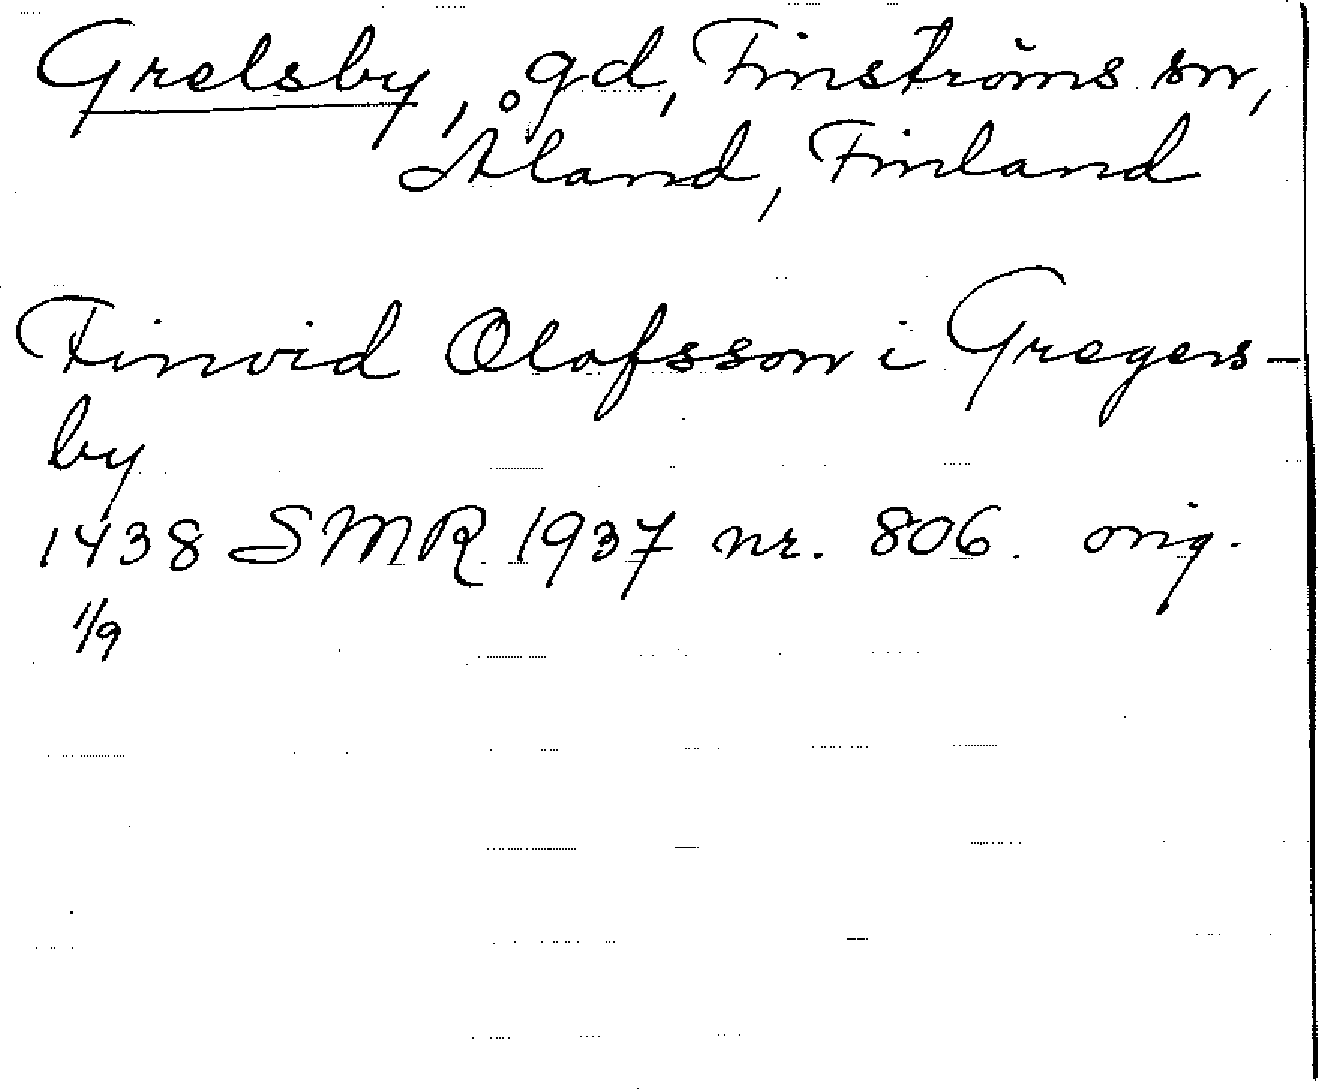 Grelsby, gd, Finströms sn,
Åland, Finland
Finvid Olafsson i Gregers-
by
1438 SMR 1937 nr. 806. orig.
1/9